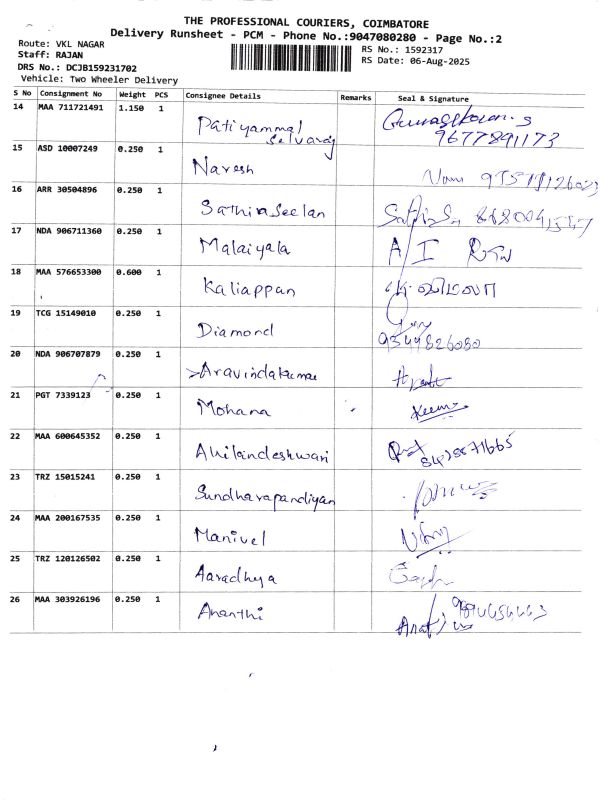 THE PROFESSIONAL COURIERS, COIMBATORE
Delivery Runsheet - PCM - Phone No.:9047080280 - Page No.:2
Route: VKL NAGAR
Staff: RAJAN
DRS No.: DCJB159231702
Vehicle: Two Wheeler Delivery
RS No.: 1592317
RS Date: 06-Aug-2025
S No Consignment No Weight PCS Consignee Details Remarks Seal & Signature
14 MAA 711721491 1.150 1 Patiyammal Selvaraj 9677891173
15 ASD 10007249 0.250 1 Naresh
16 ARR 30504896 0.250 1 Sathiaseelan
17 NDA 906711360 0.250 1 Malaiyala A/I
18 MAA 576653300 0.600 1 Kaliappan
19 TCG 15149010 0.250 1 Diamond 9344826080
20 NDA 906707879 0.250 1 Aravindakumar
21 PGT 7339123 0.250 1 Mohana
22 MAA 600645352 0.250 1 Ahilandeshwari
23 TRZ 15015241 0.250 1 Sundharapandiyan
24 MAA 200167535 0.250 1 Manivel
25 TRZ 120126502 0.250 1 Aaradhya
26 MAA 303926196 0.250 1 Ananthi